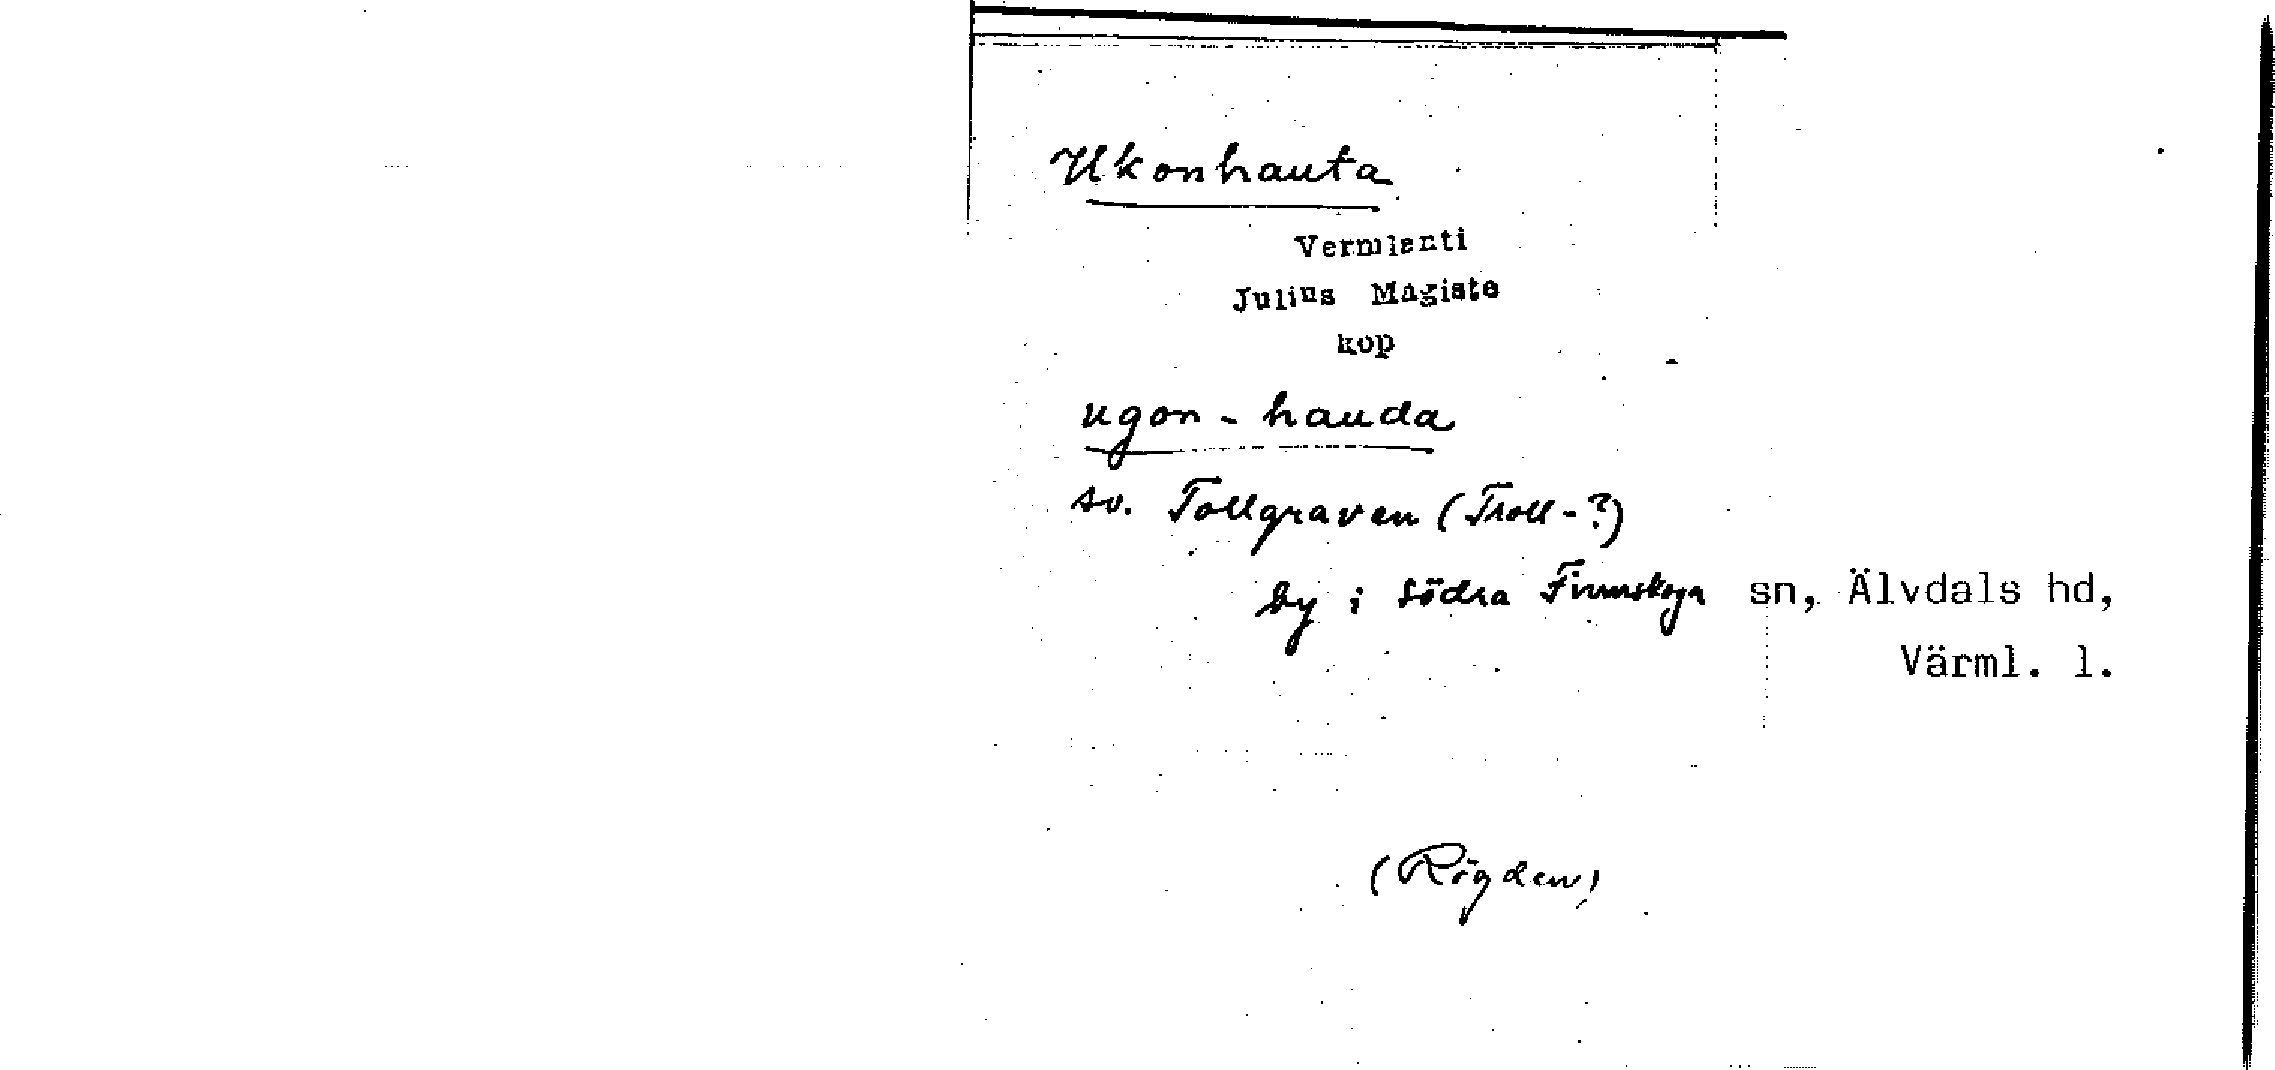 Ukonhauta
Vermlanti
Julius Mägiste
kop
ugon-hauda
sv. Tollgraven (Troll-?)
by i Södra Finnskoga sn, Älvdals hd,
Värml. l.
(Rögden)